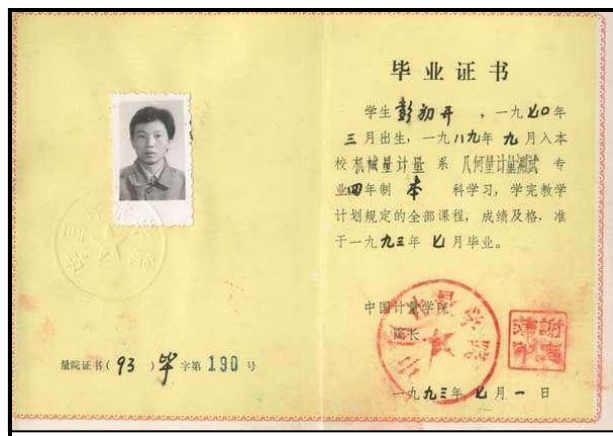 毕业证书
学生彭初开，一九七〇年
三月出生，一九八九年九月入本
校机械量计量系几何量计量测试专
业四年制本科学习，学完教学
计划规定的全部课程，成绩及格，准
于一九九三年七月毕业。
中国计量学院
院长
一九九三年七月一日
量院证书(93)毕字第190号